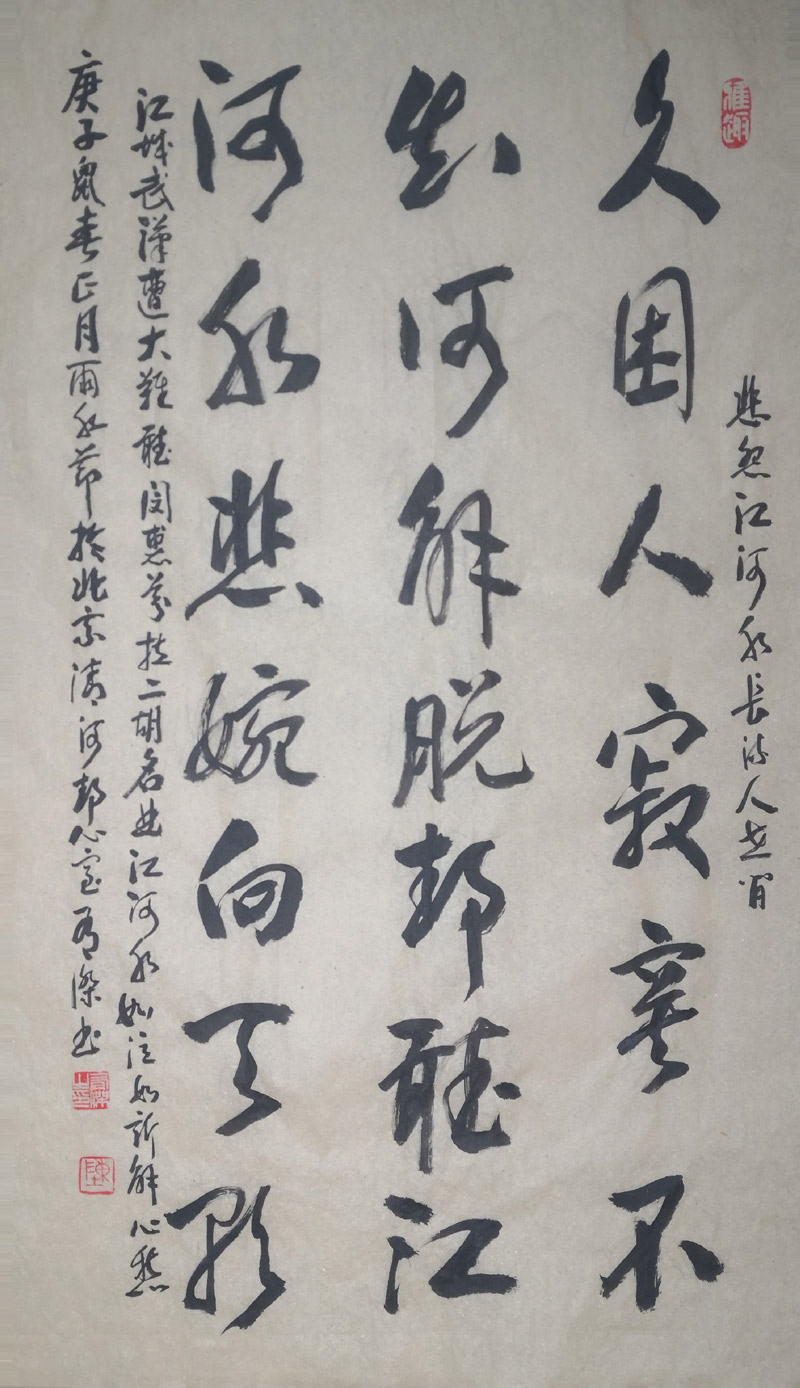 雅趣
悲怨江河水长流人世间
久困人寂寞不
知何解脱静听江
河水悲婉向天歌
江城武汉遭大难听闵惠芬拉二胡名曲江河水如泣如诉解心愁
庚子鼠春正月雨水节于北京清河静心室有杰书
陈